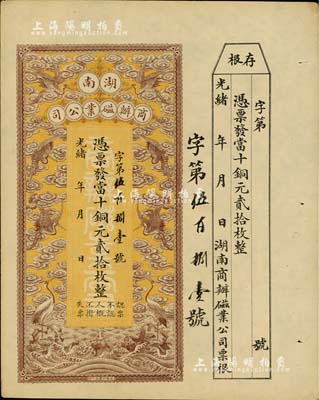 存根
字第 號
憑票發當十銅元貳拾枚整
光緒 年 月 日 湖南商辦磁業公司票根
字第伍百捌壹號
湖南
商辦磁業公司
字第伍百捌壹號
憑票發當十銅元貳拾枚整
光緒 年 月 日
認票
不認
人概
不掛
失票